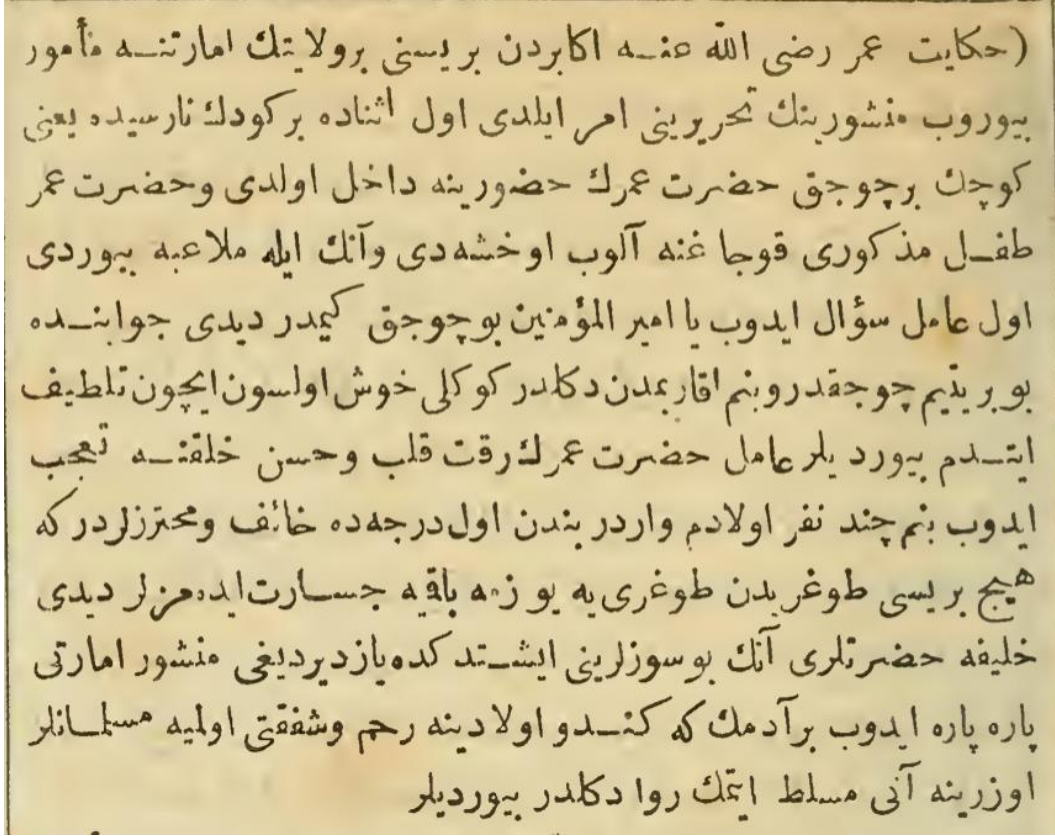 (حكايت عمر رضى الله عنه اكابردن بريسنى برولايتك امارتنه مأمور
بيوروب منشورينك تحريرينى امر ايلدى اول اثناده بر كودك نارسيده يعنى
كوچك برچوجق حضرت عمرك حضورينه داخل اولدى وحضرت عمر
طفل مذكورى قوجاغنه آلوب اوخشه‌دى وآنك ايله ملاعبه بيوردى
اول عامل سؤال ايدوب يا امير المؤمنين بوچوجق كيمدر ديدى جوابنده
بو بر يتيم چوجقدر وبنم اقاربمدن دكلدر كوكلى خوش اولسون ايچون تلطيف
ايتدم بيورديلر عامل حضرت عمرك رقت قلب وحسن خلقنه تعجب
ايدوب بنم چند نفر اولادم واردر بندن اول درجه‌ده خائف ومحترزلردر كه
هيچ بريسى طوغريدن طوغرى‌يه يوزمه باقيه جسارت ايده‌مزلر ديدى
خليفه حضرتلرى آنك بوسوزلرينى ايشتدكده يازديرديغى منشور امارتى
پاره پاره ايدوب برآدمك كه كندو اولادينه رحم وشفقتى اوليه مسلمانلر
اوزرينه آنى مسلط ايتمك روا دكلدر بيورديلر